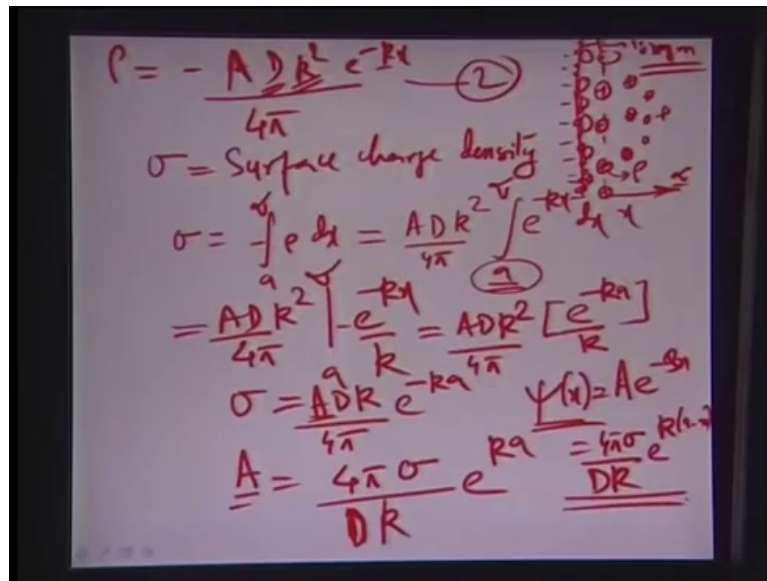 ρ = - A D k² e^-kx / 4π —— (2)
σ = Surface charge density
σ = -∫ₐ^∝ ρ dx = ADk²/4π ∫ₐ^∝ e^-kx dx
= ADk²/4π |ₐ^∝ -e^-kx/k = ADk²/4π [e^-ka/k]
σ = ADk/4π e^-ka
ψ(x) = Ae^-kx
A = 4πσ/Dk e^ka
= 4πσ/Dk e^k(a-x)